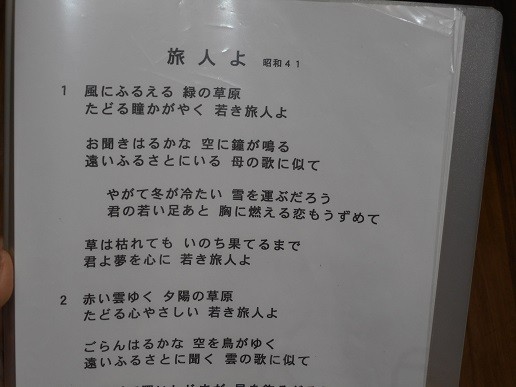 旅人よ 昭和41
1 風にふるえる 緑の草原
たどる瞳かがやく 若き旅人よ
お聞きはるかな 空に鐘が鳴る
遠いふるさとにいる 母の歌に似て
やがて冬が冷たい 雪を運ぶだろう
君の若い足あと 胸に燃える恋もうずめて
草は枯れても いのち果てるまで
君よ夢を心に 若き旅人よ
2 赤い雲ゆく 夕陽の草原
たどる心やさしい 若き旅人よ
ごらんはるかな 空を鳥がゆく
遠いふるさとに聞く 雲の歌に似て